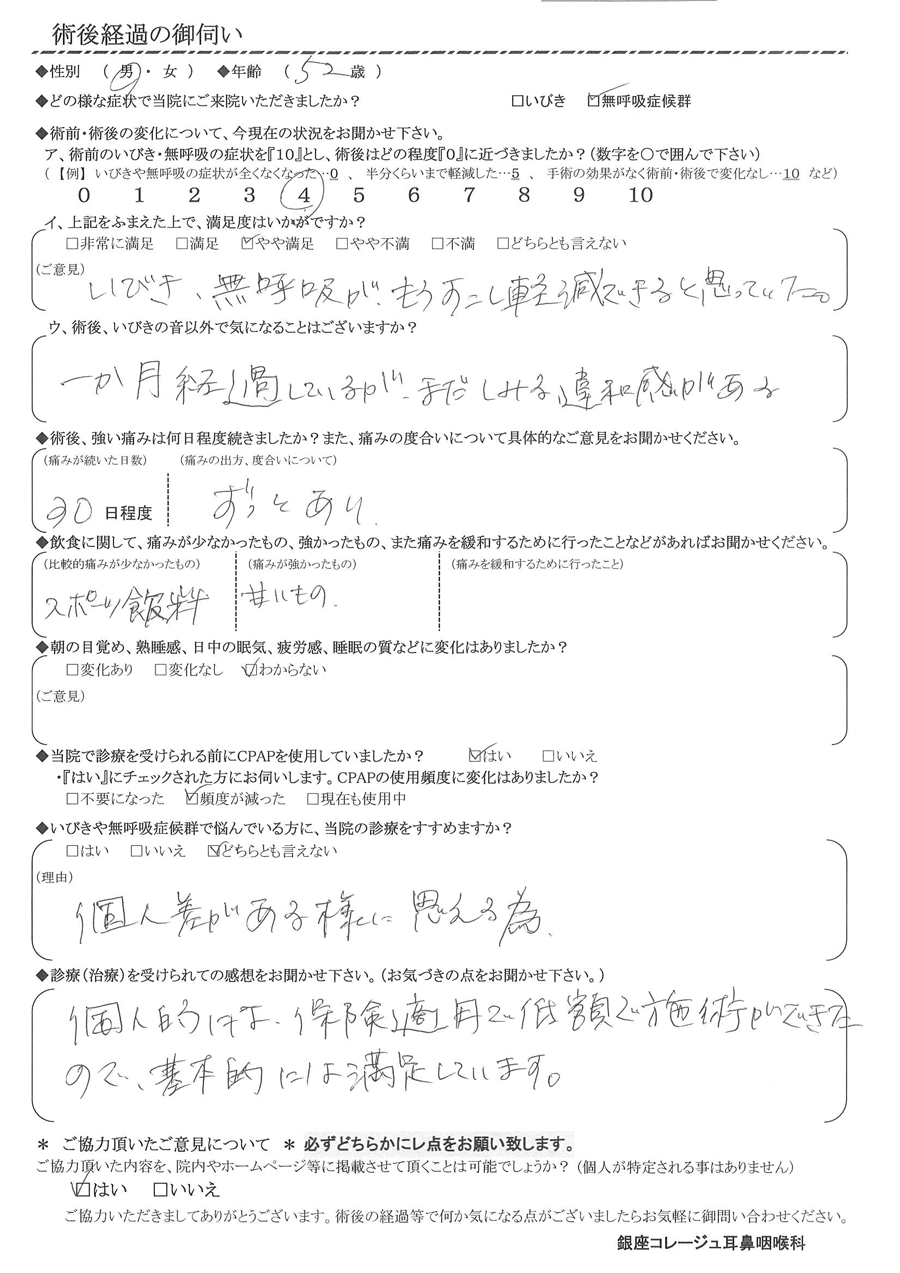 術後経過の御伺い
◆性別 （ 男 ・ 女 ） ◆年齢 （ 52 歳 ）
◆どの様な症状で当院にご来院いただきましたか？ □いびき ☑無呼吸症候群
◆術前・術後の変化について、今現在の状況をお聞かせ下さい。
ア、術前のいびき・無呼吸の症状を『10』とし、術後はどの程度『0』に近づきましたか？（数字を〇で囲んで下さい）
（ 【例】 いびきや無呼吸の症状が全くなくなった…0 、 半分くらいまで軽減した…5 、 手術の効果がなく術前・術後で変化なし…10 など）
0 1 2 3 4 5 6 7 8 9 10
イ、上記をふまえた上で、満足度はいかがですか？
□非常に満足 □満足 ☑やや満足 □やや不満 □不満 □どちらとも言えない
（ご意見）
いびき、無呼吸が、もうすこし軽減できると思っていた。
ウ、術後、いびきの音以外で気になることはございますか？
一か月経過しているが、まだしみる違和感がある
◆術後、強い痛みは何日程度続きましたか？また、痛みの度合いについて具体的なご意見をお聞かせください。
（痛みが続いた日数） （痛みの出方、度合いについて）
日程度 ずっとあり、
◆飲食に関して、痛みが少なかったもの、強かったもの、また痛みを緩和するために行ったことなどがあればお聞かせください。
（比較的痛みが少なかったもの） （痛みが強かったもの） （痛みを緩和するために行ったこと）
スポーツ飲料 甘いもの、
◆朝の目覚め、熟睡感、日中の眠気、疲労感、睡眠の質などに変化はありましたか？
□変化あり □変化なし ☑わからない
（ご意見）
◆当院で診療を受けられる前にCPAPを使用していましたか？ ☑はい □いいえ
・『はい』にチェックされた方にお伺いします。CPAPの使用頻度に変化はありましたか？
□不要になった ☑頻度が減った □現在も使用中
◆いびきや無呼吸症候群で悩んでいる方に、当院の診療をすすめますか？
□はい □いいえ ☑どちらとも言えない
（理由）
個人差がある様に思える為、
◆診療（治療）を受けられての感想をお聞かせ下さい。（お気づきの点をお聞かせ下さい。）
個人的には、保険適用で低額で施術ができた
ので、基本的には満足しています。
＊ ご協力頂いたご意見について ＊ 必ずどちらかにレ点をお願い致します。
ご協力頂いた内容を、院内やホームページ等に掲載させて頂くことは可能でしょうか？（個人が特定される事はありません）
☑はい □いいえ
ご協力いただきましてありがとうございます。術後の経過等で何か気になる点がございましたらお気軽に御問い合わせください。
銀座コレージュ耳鼻咽喉科